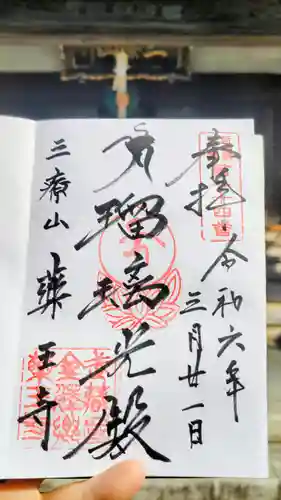 奉拝 令和六年
三月廿一日
瑠璃光殿
三療山 薬王寺